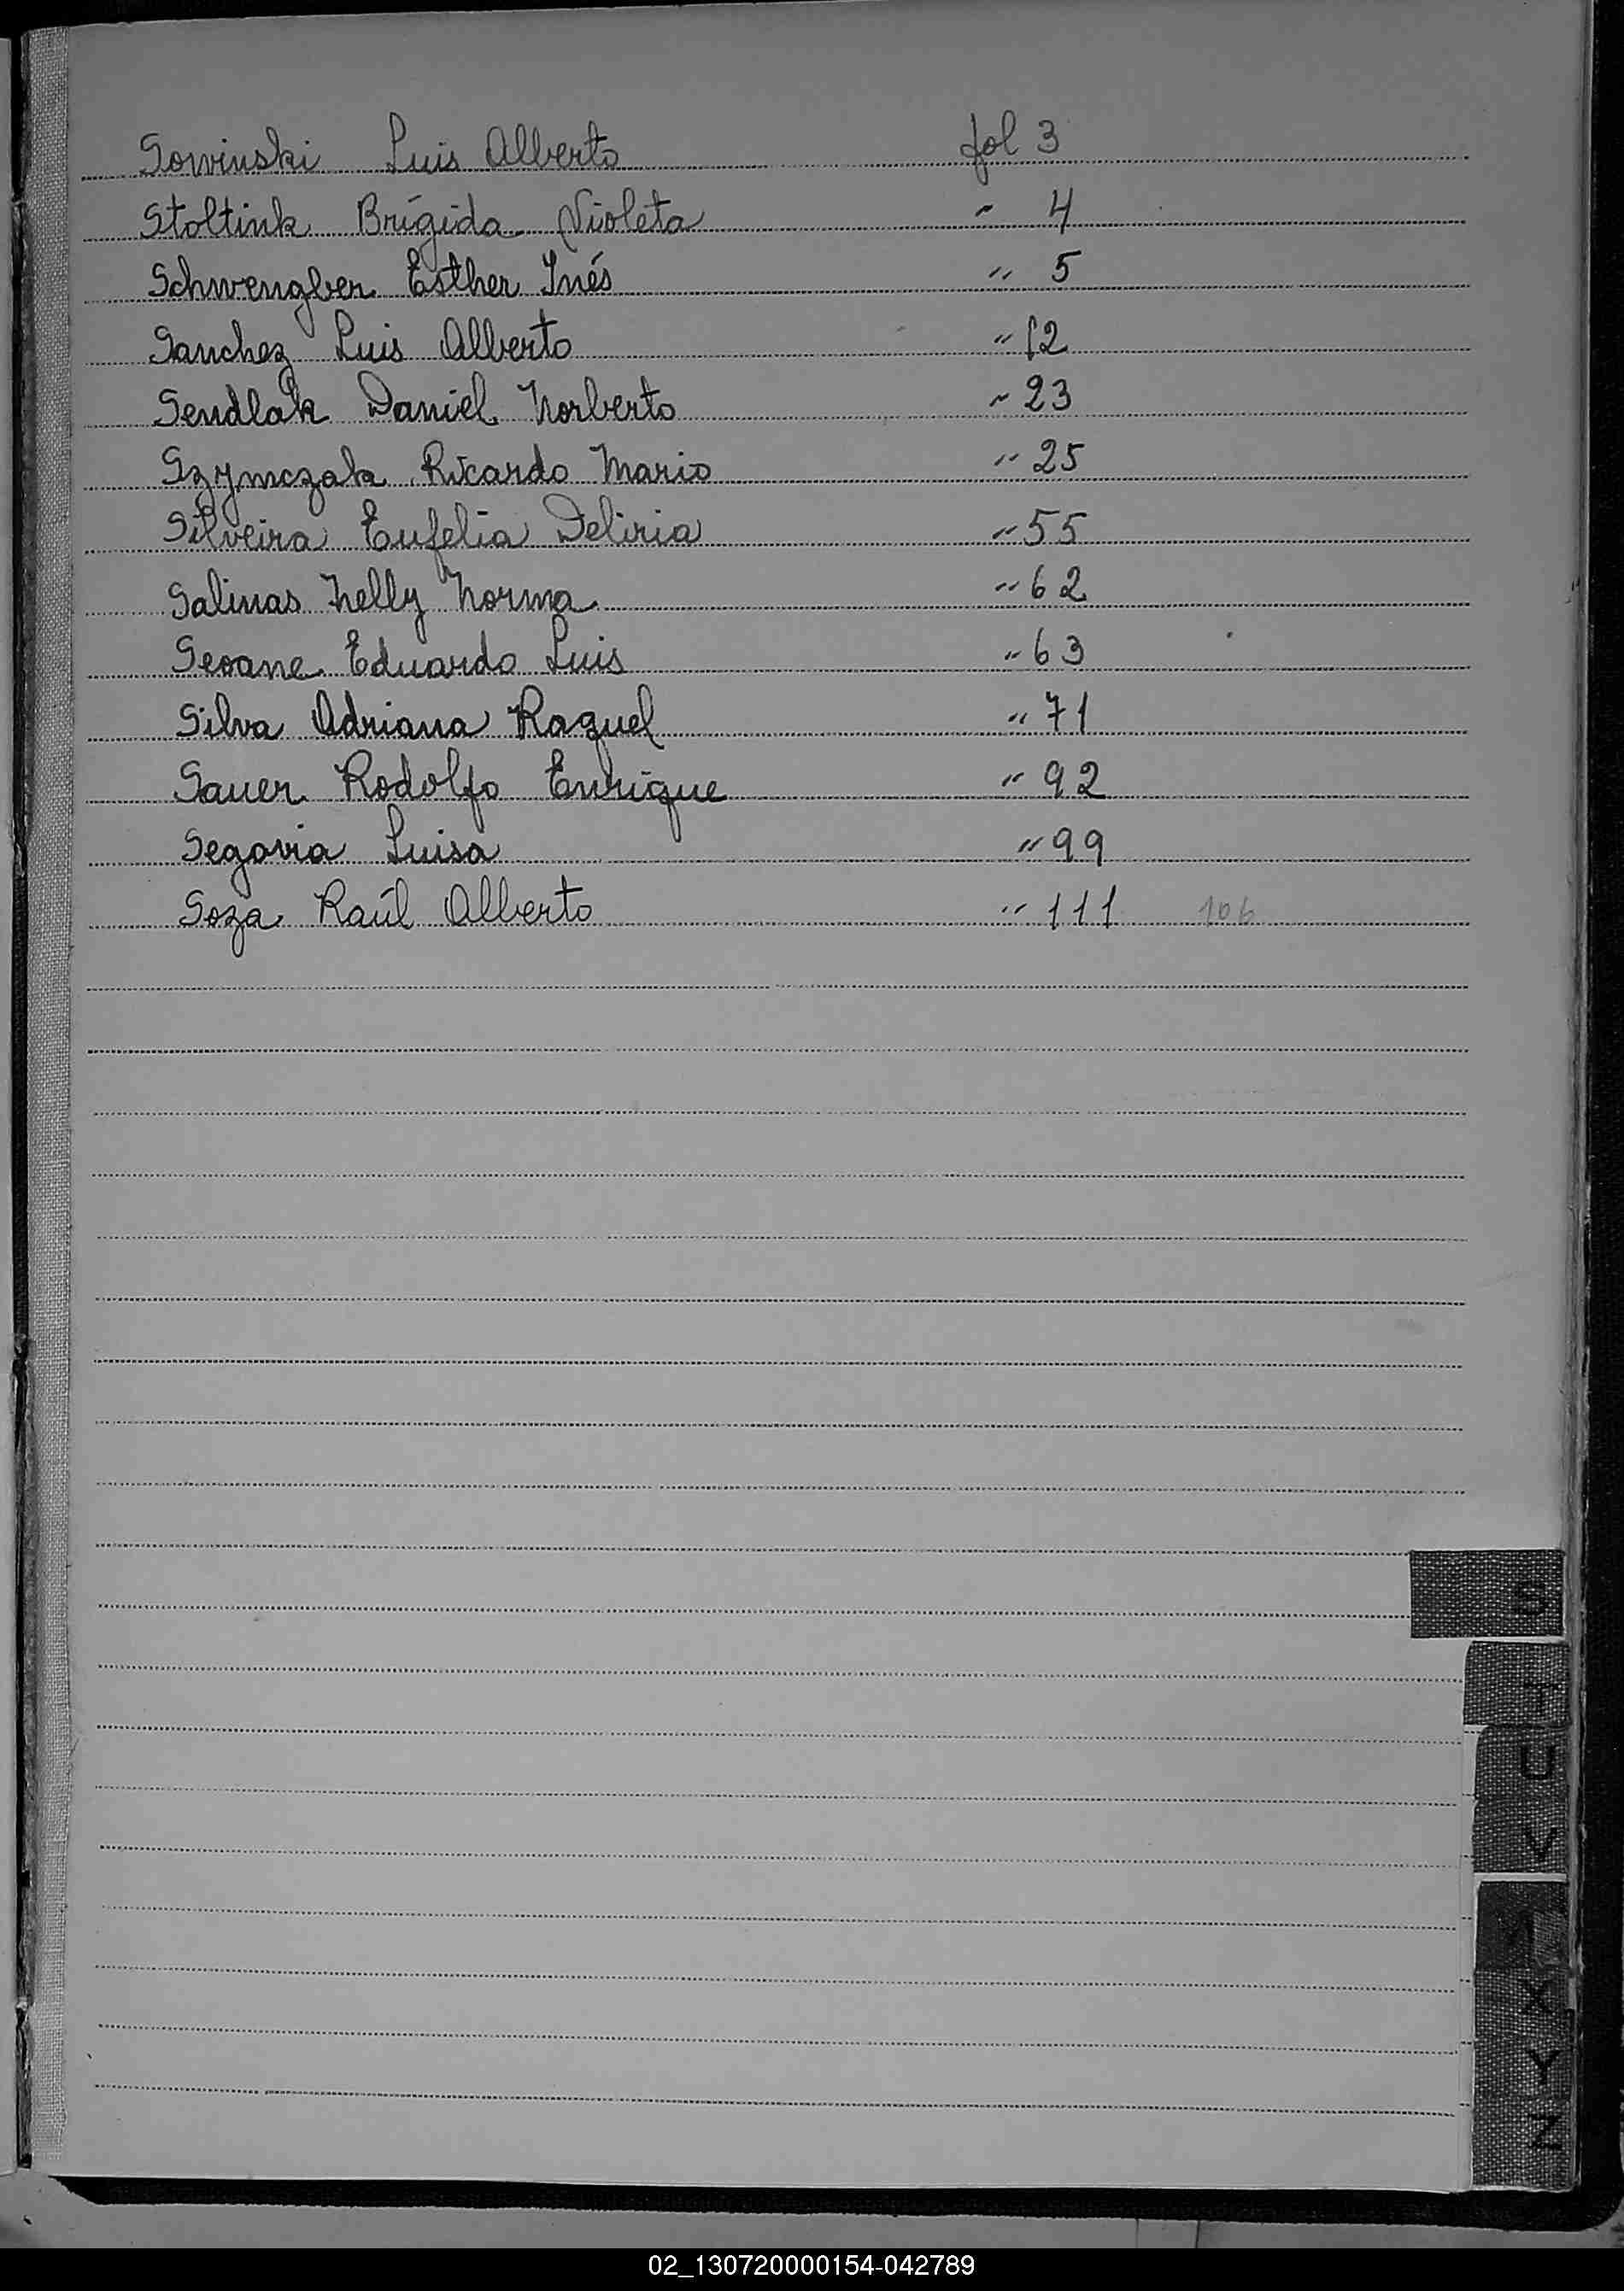 Sowinski Luis Alberto fol 3
Stoltink Brígida Violeta " 4
Schwengber Esther Inés " 5
Sanchez Luis Alberto " 12
Sendlak Daniel Norberto " 23
Szymczak Ricardo Mario " 25
Silveira Eufelia Deliria " 55
Salinas Nelly Norma " 62
Seoane Eduardo Luis " 63
Silva Adriana Raquel " 71
Sauer Rodolfo Enrique " 92
Segovia Luisa " 99
Soza Raúl Alberto " 111 106
S
T
U
V
X
Y
Z
02_130720000154-042789